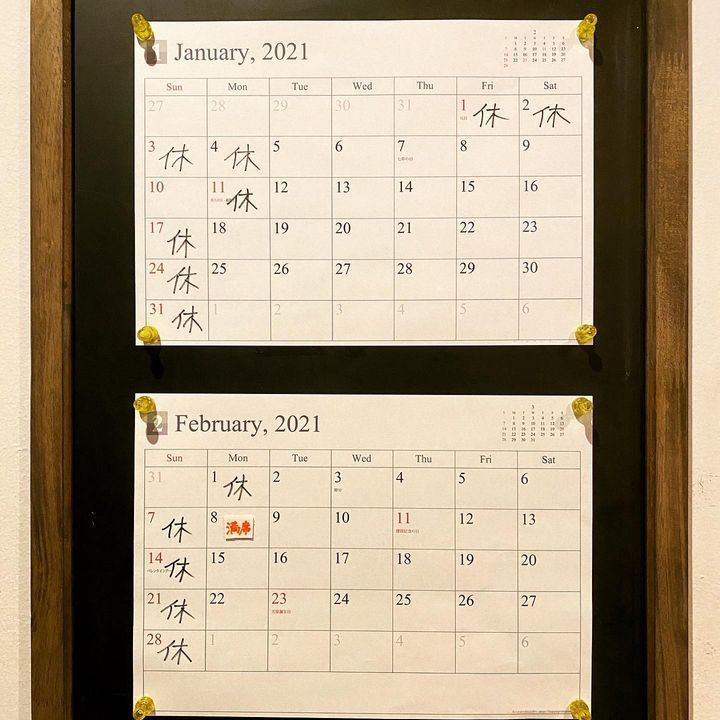 1 January, 2021
2
Sun Mon Tue Wed Thu Fri Sat
27 28 29 30 31 1 休 2 休
3 休 4 休 5 6 7 8 9
七草の日
10 11 休 12 13 14 15 16
17 休 18 19 20 21 22 23
24 休 25 26 27 28 29 30
31 休 1 2 3 4 5 6
2 February, 2021
3
Sun Mon Tue Wed Thu Fri Sat
31 1 休 2 3 4 5 6
節分
7 休 8 満席 9 10 11 12 13
建国記念の日
14 休 15 16 17 18 19 20
バレンタインデー
21 休 22 23 24 25 26 27
天皇誕生日
28 休 1 2 3 4 5 6